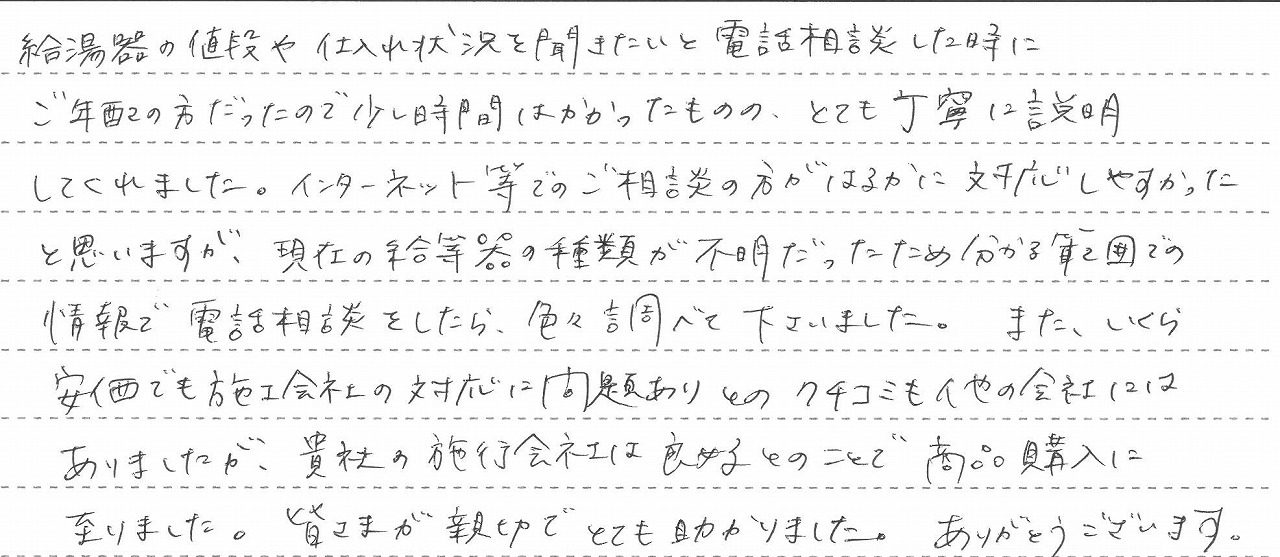 給湯器の値段や仕入れ状況を聞きたいと電話相談した時に
ご年配の方だったので少し時間はかかったものの、とても丁寧に説明
してくれました。インターネット等でのご相談の方がはるかに対応しやすかった
と思いますが、現在の給等器の種類が不明だったため分かる範囲での
情報で電話相談をしたら、色々調べて下さいました。 また、いくら
安価でも施工会社の対応に問題ありとのクチコミも他の会社には
ありましたが、貴社の施行会社は良好とのことで商品購入に
至りました。皆さまが親切でとても助かりました。ありがとうございます。